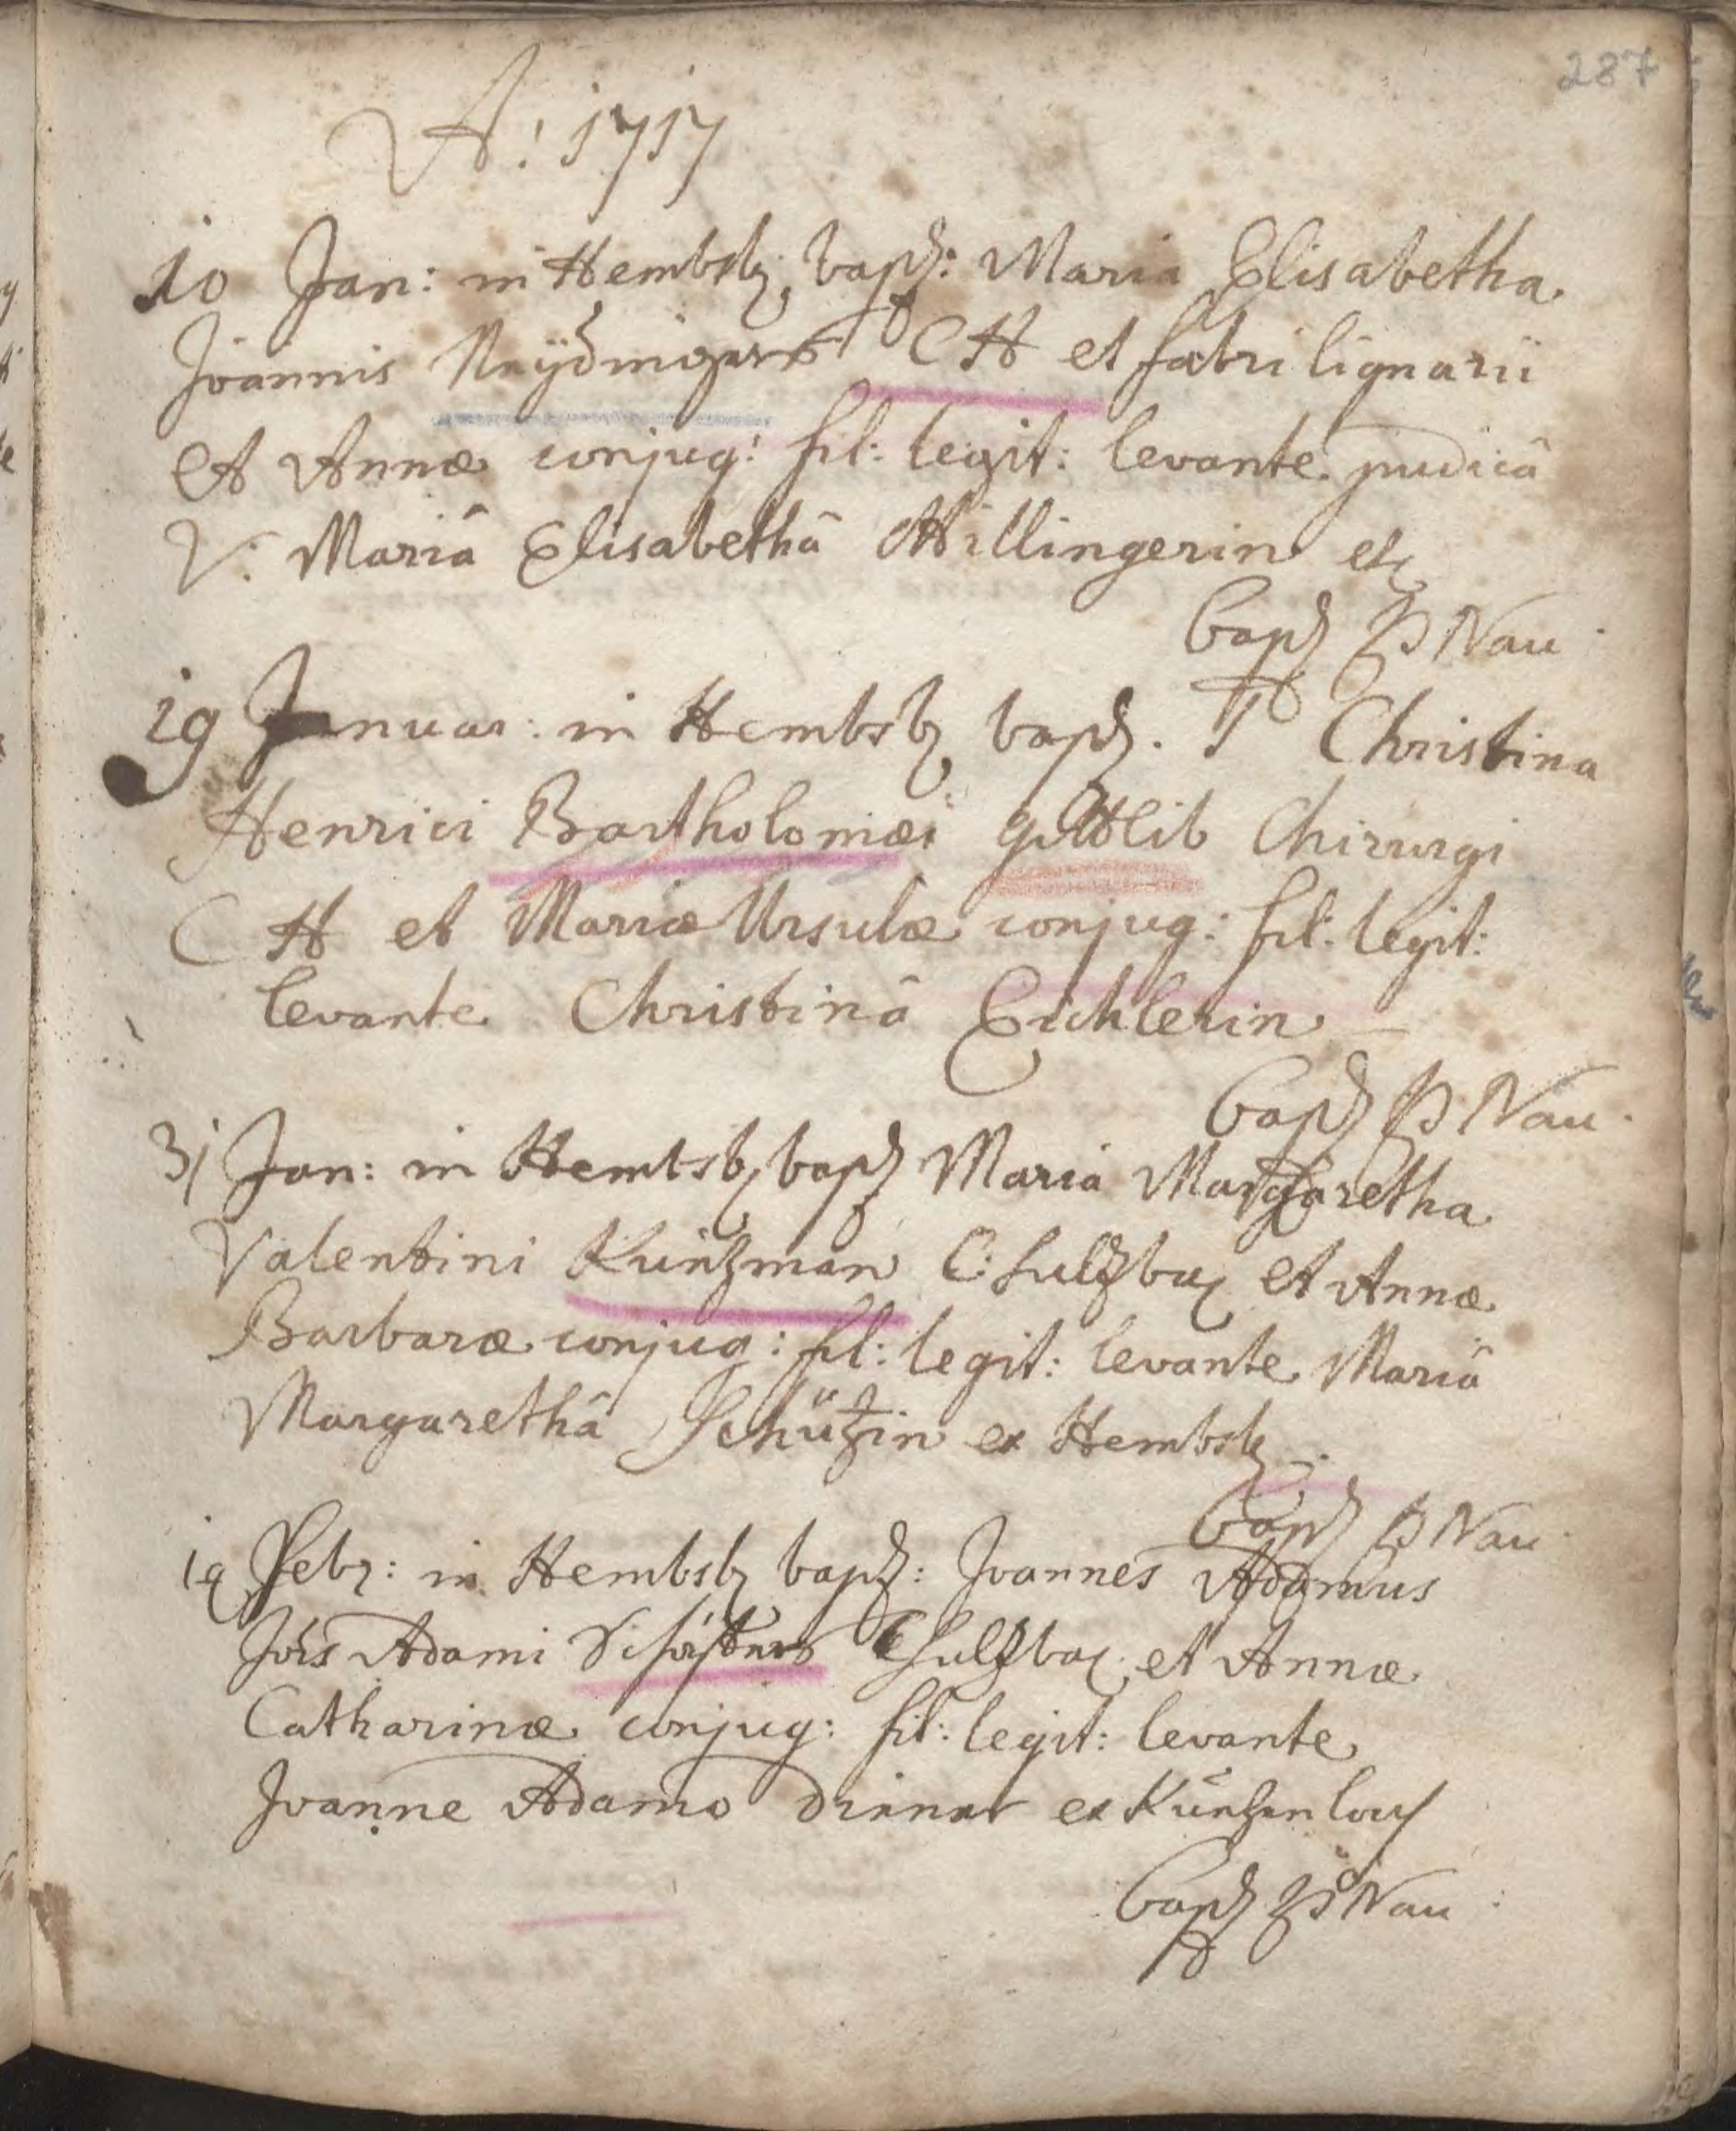 287
A: 1717
10 Jan: in Hembsb. bapt: Maria Elisabetha
Joannis Neÿdingers C H et fabri lignarii
et Annæ conjug: fil: legit: levante pudicâ
V. Mariâ Elisabethâ Hillingerin etc
bapt P Nau
19 Januar: in Hembsb bapt. Christina
Henrici Bartholomæi gottlib Chirurgi
C H et Mariæ Ursulæ conjug: fil: legit:
levante Christinâ Eichlerin
bapt P Nau
31 Jan: in Hembsb bapt Maria Margaretha
Valentini Küntzman C: Sultzbac et Annæ
Barbaræ conjug: fil: legit: levante Mariâ
Margarethâ Schützin ex Hembsb
bapt P Nau
Febr: in Hembsb bapt: Joannes Adamus
Jois Adami C Sultzbac et Annæ
Catharinæ conjug: fil: legit: levante
Joanne Adamo ex
bapt P Nau